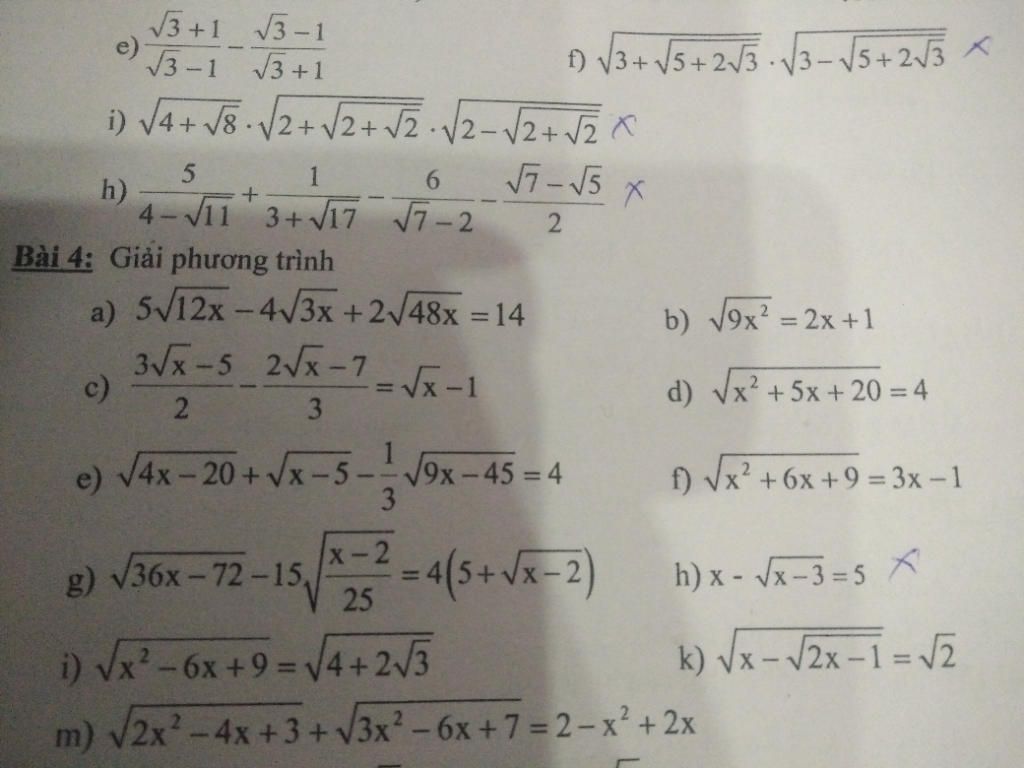 e) \frac{\sqrt{3}+1}{\sqrt{3}-1} - \frac{\sqrt{3}-1}{\sqrt{3}+1} f) \sqrt{3+\sqrt{5+2\sqrt{3}}} . \sqrt{3-\sqrt{5+2\sqrt{3}}} x
i) \sqrt{4+\sqrt{8}} . \sqrt{2+\sqrt{2+\sqrt{2}}} . \sqrt{2-\sqrt{2+\sqrt{2}}} x
h) \frac{5}{4-\sqrt{11}} + \frac{1}{3+\sqrt{17}} - \frac{6}{\sqrt{7}-2} - \frac{\sqrt{7}-\sqrt{5}}{2} x
Bài 4: Giải phương trình
a) 5\sqrt{12x} - 4\sqrt{3x} + 2\sqrt{48x} = 14 b) \sqrt{9x^2} = 2x+1
c) \frac{3\sqrt{x}-5}{2} - \frac{2\sqrt{x}-7}{3} = \sqrt{x}-1 d) \sqrt{x^2+5x+20} = 4
e) \sqrt{4x-20} + \sqrt{x-5} - \frac{1}{3}\sqrt{9x-45} = 4 f) \sqrt{x^2+6x+9} = 3x-1
g) \sqrt{36x-72} - 15\sqrt{\frac{x-2}{25}} = 4(5+\sqrt{x-2}) h) x - \sqrt{x-3} = 5 x
i) \sqrt{x^2-6x+9} = \sqrt{4+2\sqrt{3}} k) \sqrt{x-\sqrt{2x-1}} = \sqrt{2}
m) \sqrt{2x^2-4x+3} + \sqrt{3x^2-6x+7} = 2-x^2+2x